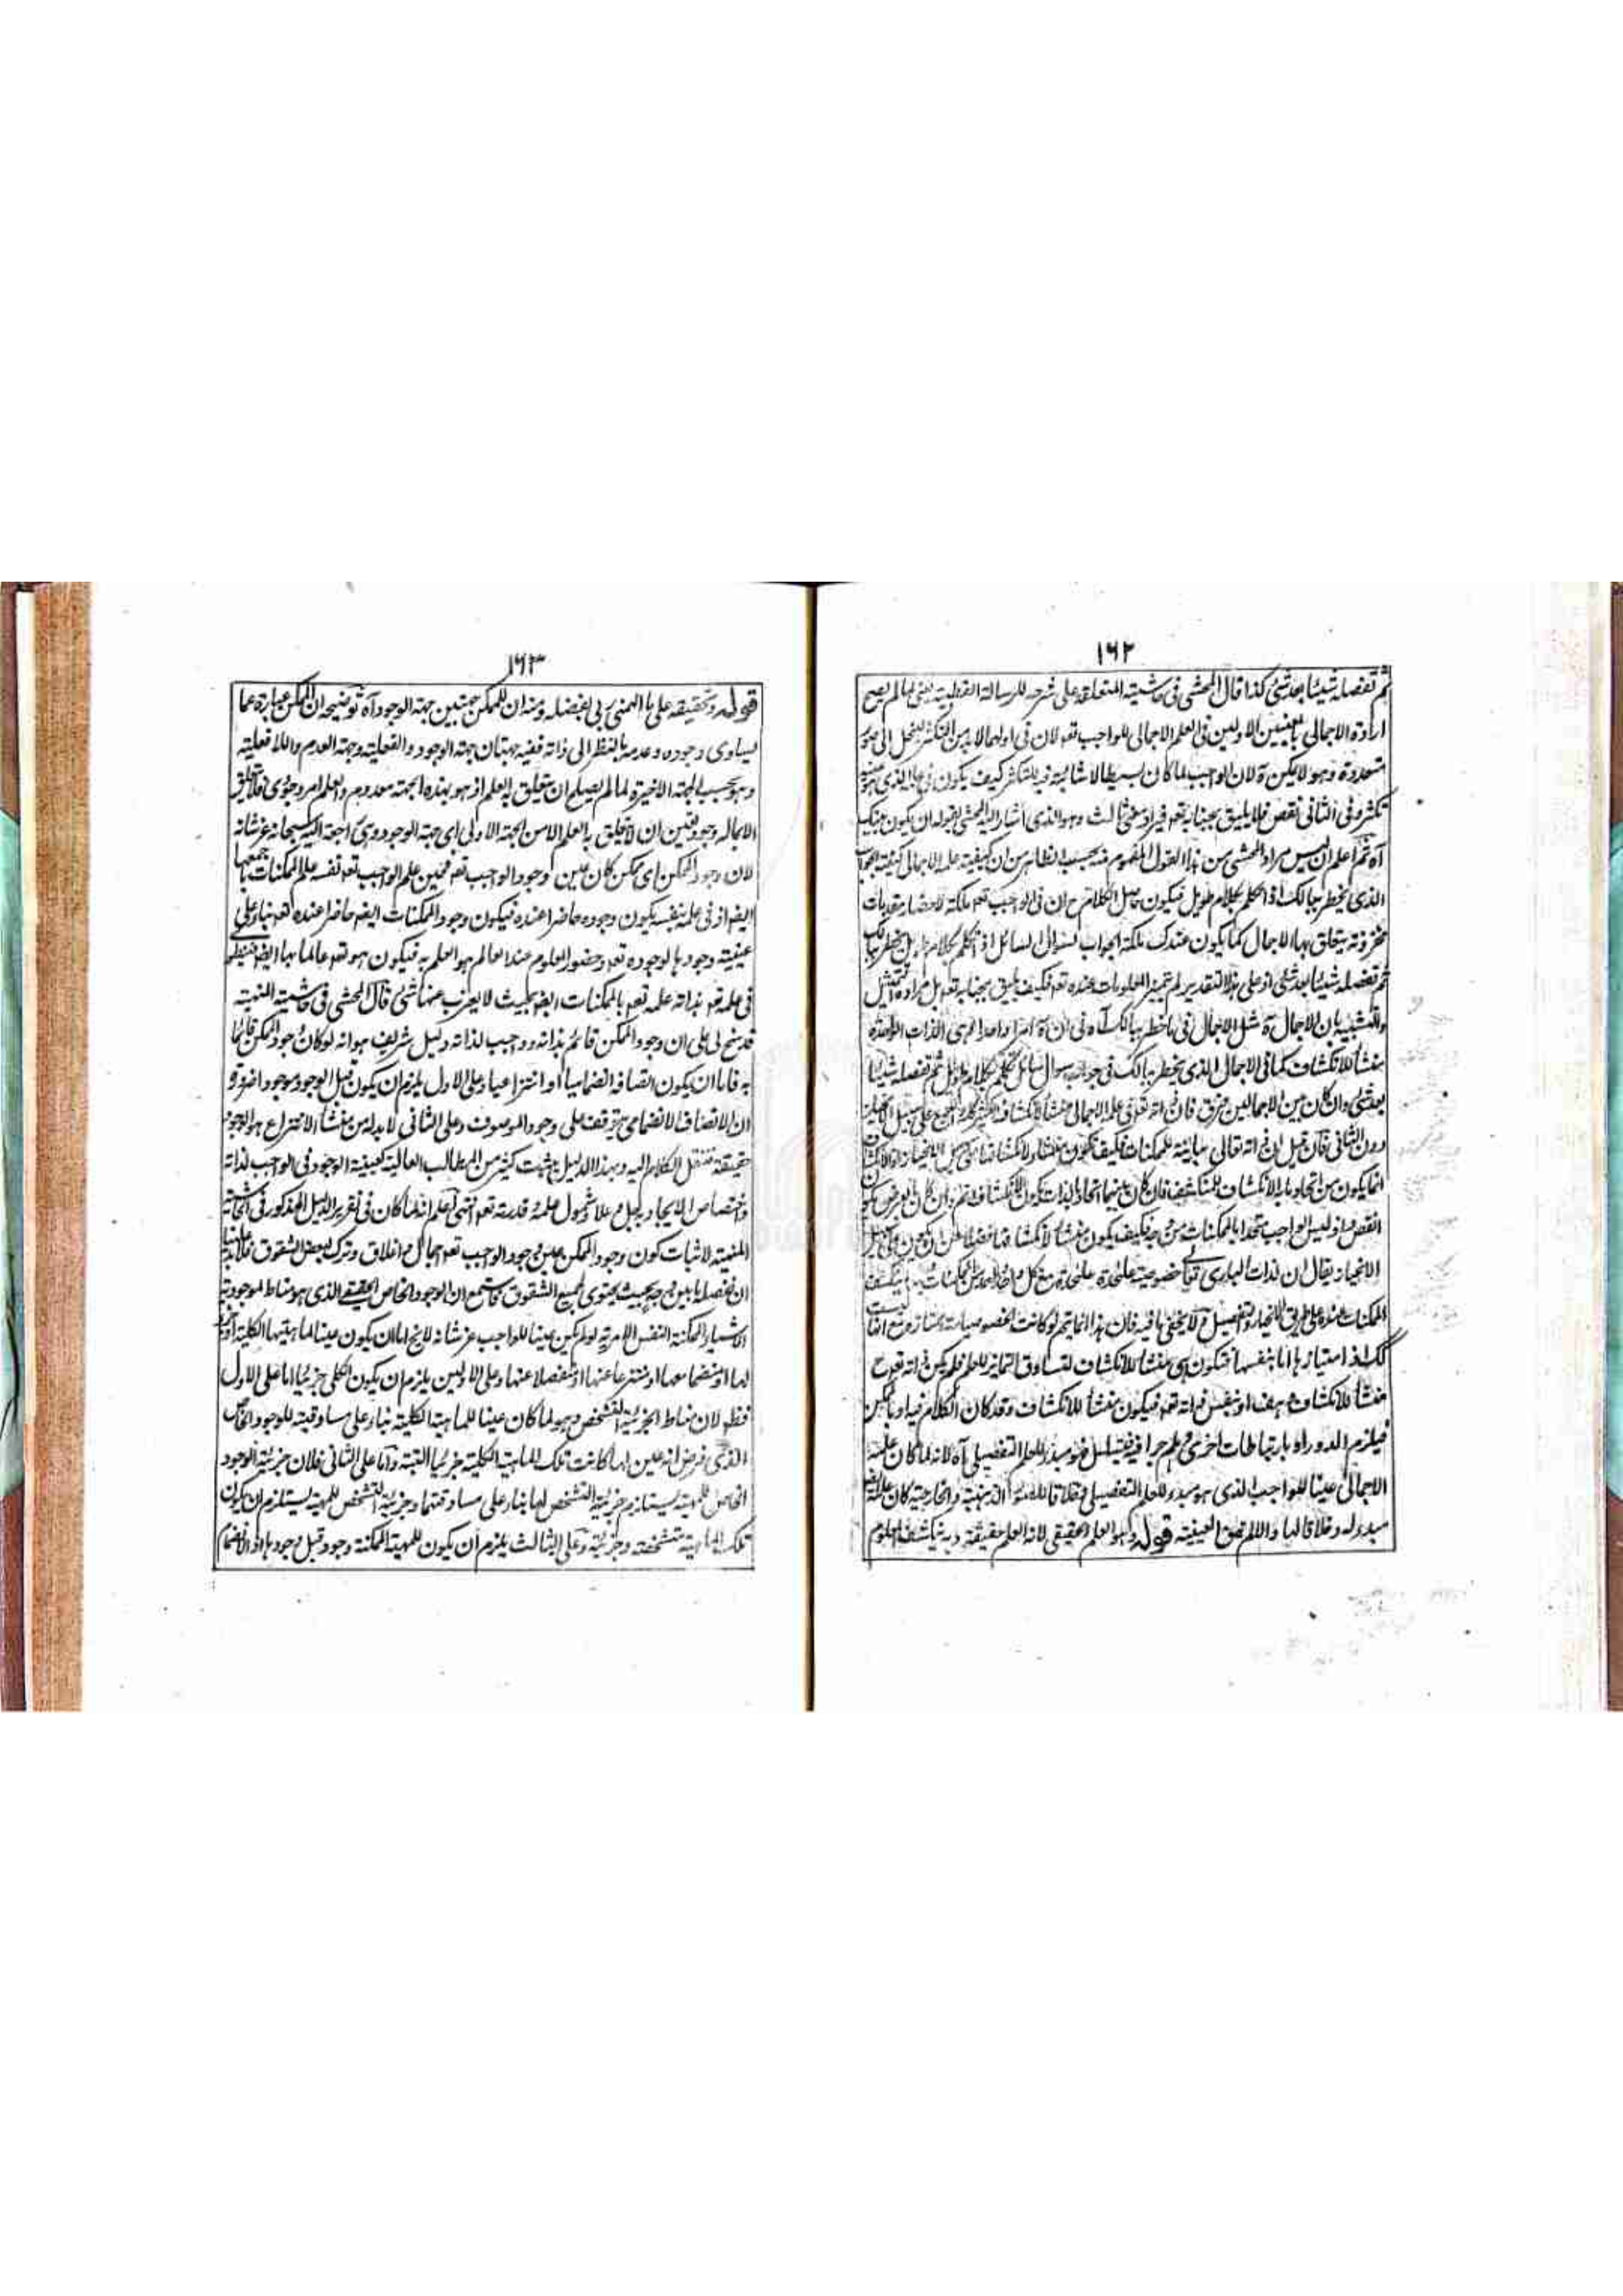 ١٦٢
ثم تفصله شيئا بعد شئ كذا قال المحشى فى حاشيته المتعلقة على شرحه للرسالة القطبية يعنى لما لم يصح
ارادة الاجمالى بالمعنيين الاولين فى العلم الاجمالى للواجب تعه لان فى اولهما لابد من التكثر ينحل الى صور
متعددة وهو لا يمكن ة لان الواجب لما كان بسيطا لا شائبة فيه للتكثر كيف يكون
تكثر وفى الثانى نقص فلا يليق بجنابه تعه فيراد معنى ثالث وهو الذى اشار اليه المحشى بقوله ان يكون هناك
آه ثم اعلم ان ليس مراد المحشى من هذا القول المفهوم منه بحسب الظاهر من ان كيفية علمه الاجمالى كيفية الجواب
الذى يخطر ببالك اذا تكلم بكلام طويل فيكون حاصل الكلام ح ان فى الواجب تعه ملكة لاحضار مقدمات
مخزونة يتعلق بها الاجمال كما يكون عندك ملكة الجواب لسؤال لسائل اذا تكلم بكلام طويل يخطر ببالك
ثم تفصله شيئا بعد شئ اذ على هذا التقدير لم تتميز المعلومات عنده تعه فكيف يليق بجنابه تعه بل مراده التمثيل
والتشبيه بان الاجمال ة مثل الاجمال فى ما خطر ببالك آه فى ان ة امرا واحدا هى الذات الواحدة
منشأ للانكشاف كما فى الاجمال الذى يخطر ببالك فى جواب سوال سائل تكلم بكلام طويل ثم تفصله شيئا
بعد شئ وان كان بين الاجمالين فرق فان ذاته تعه فى علمه الاجمالى منشأ لانكشاف
دون الثانى فان قيل ان ذاته تعالى مباينة للممكنات فكيف تكون منشأ لانكشافها على سبيل الانحياز اذ الانكشاف
انما يكون من اتحاد ما به الانكشاف للمنكشف فان كان بينهما اتحاد بالذات يكون الانكشاف اتم وان كان بالعرض يكون
انقص وليس الواجب متحدا بالممكنات من وجه فكيف يكون منشأ لانكشافها فضلا من ان يكون على سبيل
الانحياز يقال ان لذات البارى تعالى خصوصية علحدة علحدة مع كل واحد واحد من الممكنات بها ينكشف
الممكنات عنده على طريق الانحياز والتفصيل ولا يخفى ما فيه فان هذا انما يتم لو كانت الخصوصيات ممتازة مع انها ليست
كك اذ امتيازها اما بنفسها فتكون هى منشأ للانكشاف لتساوق التمايز للعلم فلم يكن ذاته تعه ح
منشأ للانكشاف هف او بنفس ذاته تعه فيكون منشأ للانكشاف وقد كان الكلام فيه او بالممكن
فيلزم الدور او بارتباطات اخرى وهلم جرا فيتسلسل فهو مبدء للعلم التفصيلى آه لانه لما كان علمه
الاجمالى عينا للواجب الذى هو مبدء للعلم التفصيلى وخلاقا للصور الذهنية والخارجية كان علمه ايضا
مبدء له وخلاقا لها والا لم تصدق العينية قوله وهو العلم الحقيقى لانه العلم حقيقة وبه ينكشف المعلوم
١٦٣
قوله وتحقيقه على ما الهمنى ربى بفضله ومنه ان للممكن جهتين جهة الوجود آه توضيحه ان الممكن عبارة عما
يساوى وجوده وعدمه بالنظر الى ذاته ففيه جهتان جهة الوجود والفعلية وجهة العدم واللا فعلية
وهو بحسب الجهة الاخيرة لما لم يصلح ان يتعلق به العلم اذ هو بهذه الجهة معدوم والعلم امر وجودى فلا يتعلق
الا بماله وجود تعين ان لا يتعلق به العلم الا من الجهة الاولى اى جهة الوجود وهى راجعة اليه سبحانه عز شانه
لان وجود الممكن اى ممكن كان عين وجود الواجب تعه فحين علم الواجب تعه نفسه علم الممكنات باجمعها
ايضا اذ فى علمه بنفسه يكون وجوده حاضرا عنده فيكون وجود الممكنات ايضا حاضرا عنده تعه بناء على
عينية وجودها لوجوده تعه وحضور المعلوم عند العالم هو العلم به فيكون هو تعه عالما بها ايضا فينطوى
فى علمه تعه بذاته علمه تعه بالممكنات ايضا بحيث لا يعزب عنها شئ قال المحشى فى حاشيته المنهية
قد سنح لى على ان وجود الممكن قائم بذاته وواجب لذاته دليل شريف هو انه لو كان وجود الممكن قائما
به فاما ان يكون اتصافه انضماميا او انتزاعيا وعلى الاول يلزم ان يكون قبل الوجود موجودا ضرورة
ان الاتصاف الانضمامى يتوقف على وجود الموصوف وعلى الثانى لا بد له من منشأ الانتزاع هو الوجود
حقيقة فننقل الكلام اليه وبهذا الدليل يثبت كثير من المطالب العالية كعينية الوجود فى الواجب لذاته
واختصاص الايجاد به جل وعلا وشمول علمه وقدرته تعه انتهى اعلم انه لما كان فى تقرير الدليل المذكور فى الحاشية
المنهية لاثبات كون وجود الممكن عين وجود الواجب تعه اجمال واغلاق وترك بعض الشقوق فلا بد علينا
ان نفصله بابين وجه بحيث يحتوى لجميع الشقوق فاستمع ان الوجود الخاص الحقيقى الذى هو مناط لموجودية
الاشياء الممكنة النفس الامرية لو لم يكن عينا للواجب عز شانه لا يخ اما ان يكون عينا لماهيتها الكلية او جزء
لها او منضما معها او منتزعا عنها او منفصلا عنها وعلى الاولين يلزم ان يكون الكلى جزئيا اما على الاول
فظه لان مناط الجزئية التشخص وهو لما كان عينا للماهية الكلية بناء على مساوقيته للوجود الخاص
الذى فرض انه عين لها كانت تلك الماهية الكلية جزئيا البتة واما على الثانى فلان جزئية الوجود
الخاص للمهية يستلزم جزئية التشخص لها بناء على مساوقتهما وجزئية التشخص للمهية يستلزم ان يكون
تلك الماهية متشخصة وجزئية وعلى الثالث يلزم ان يكون للمهية الممكنة وجود قبل وجودها اذ الانضمام